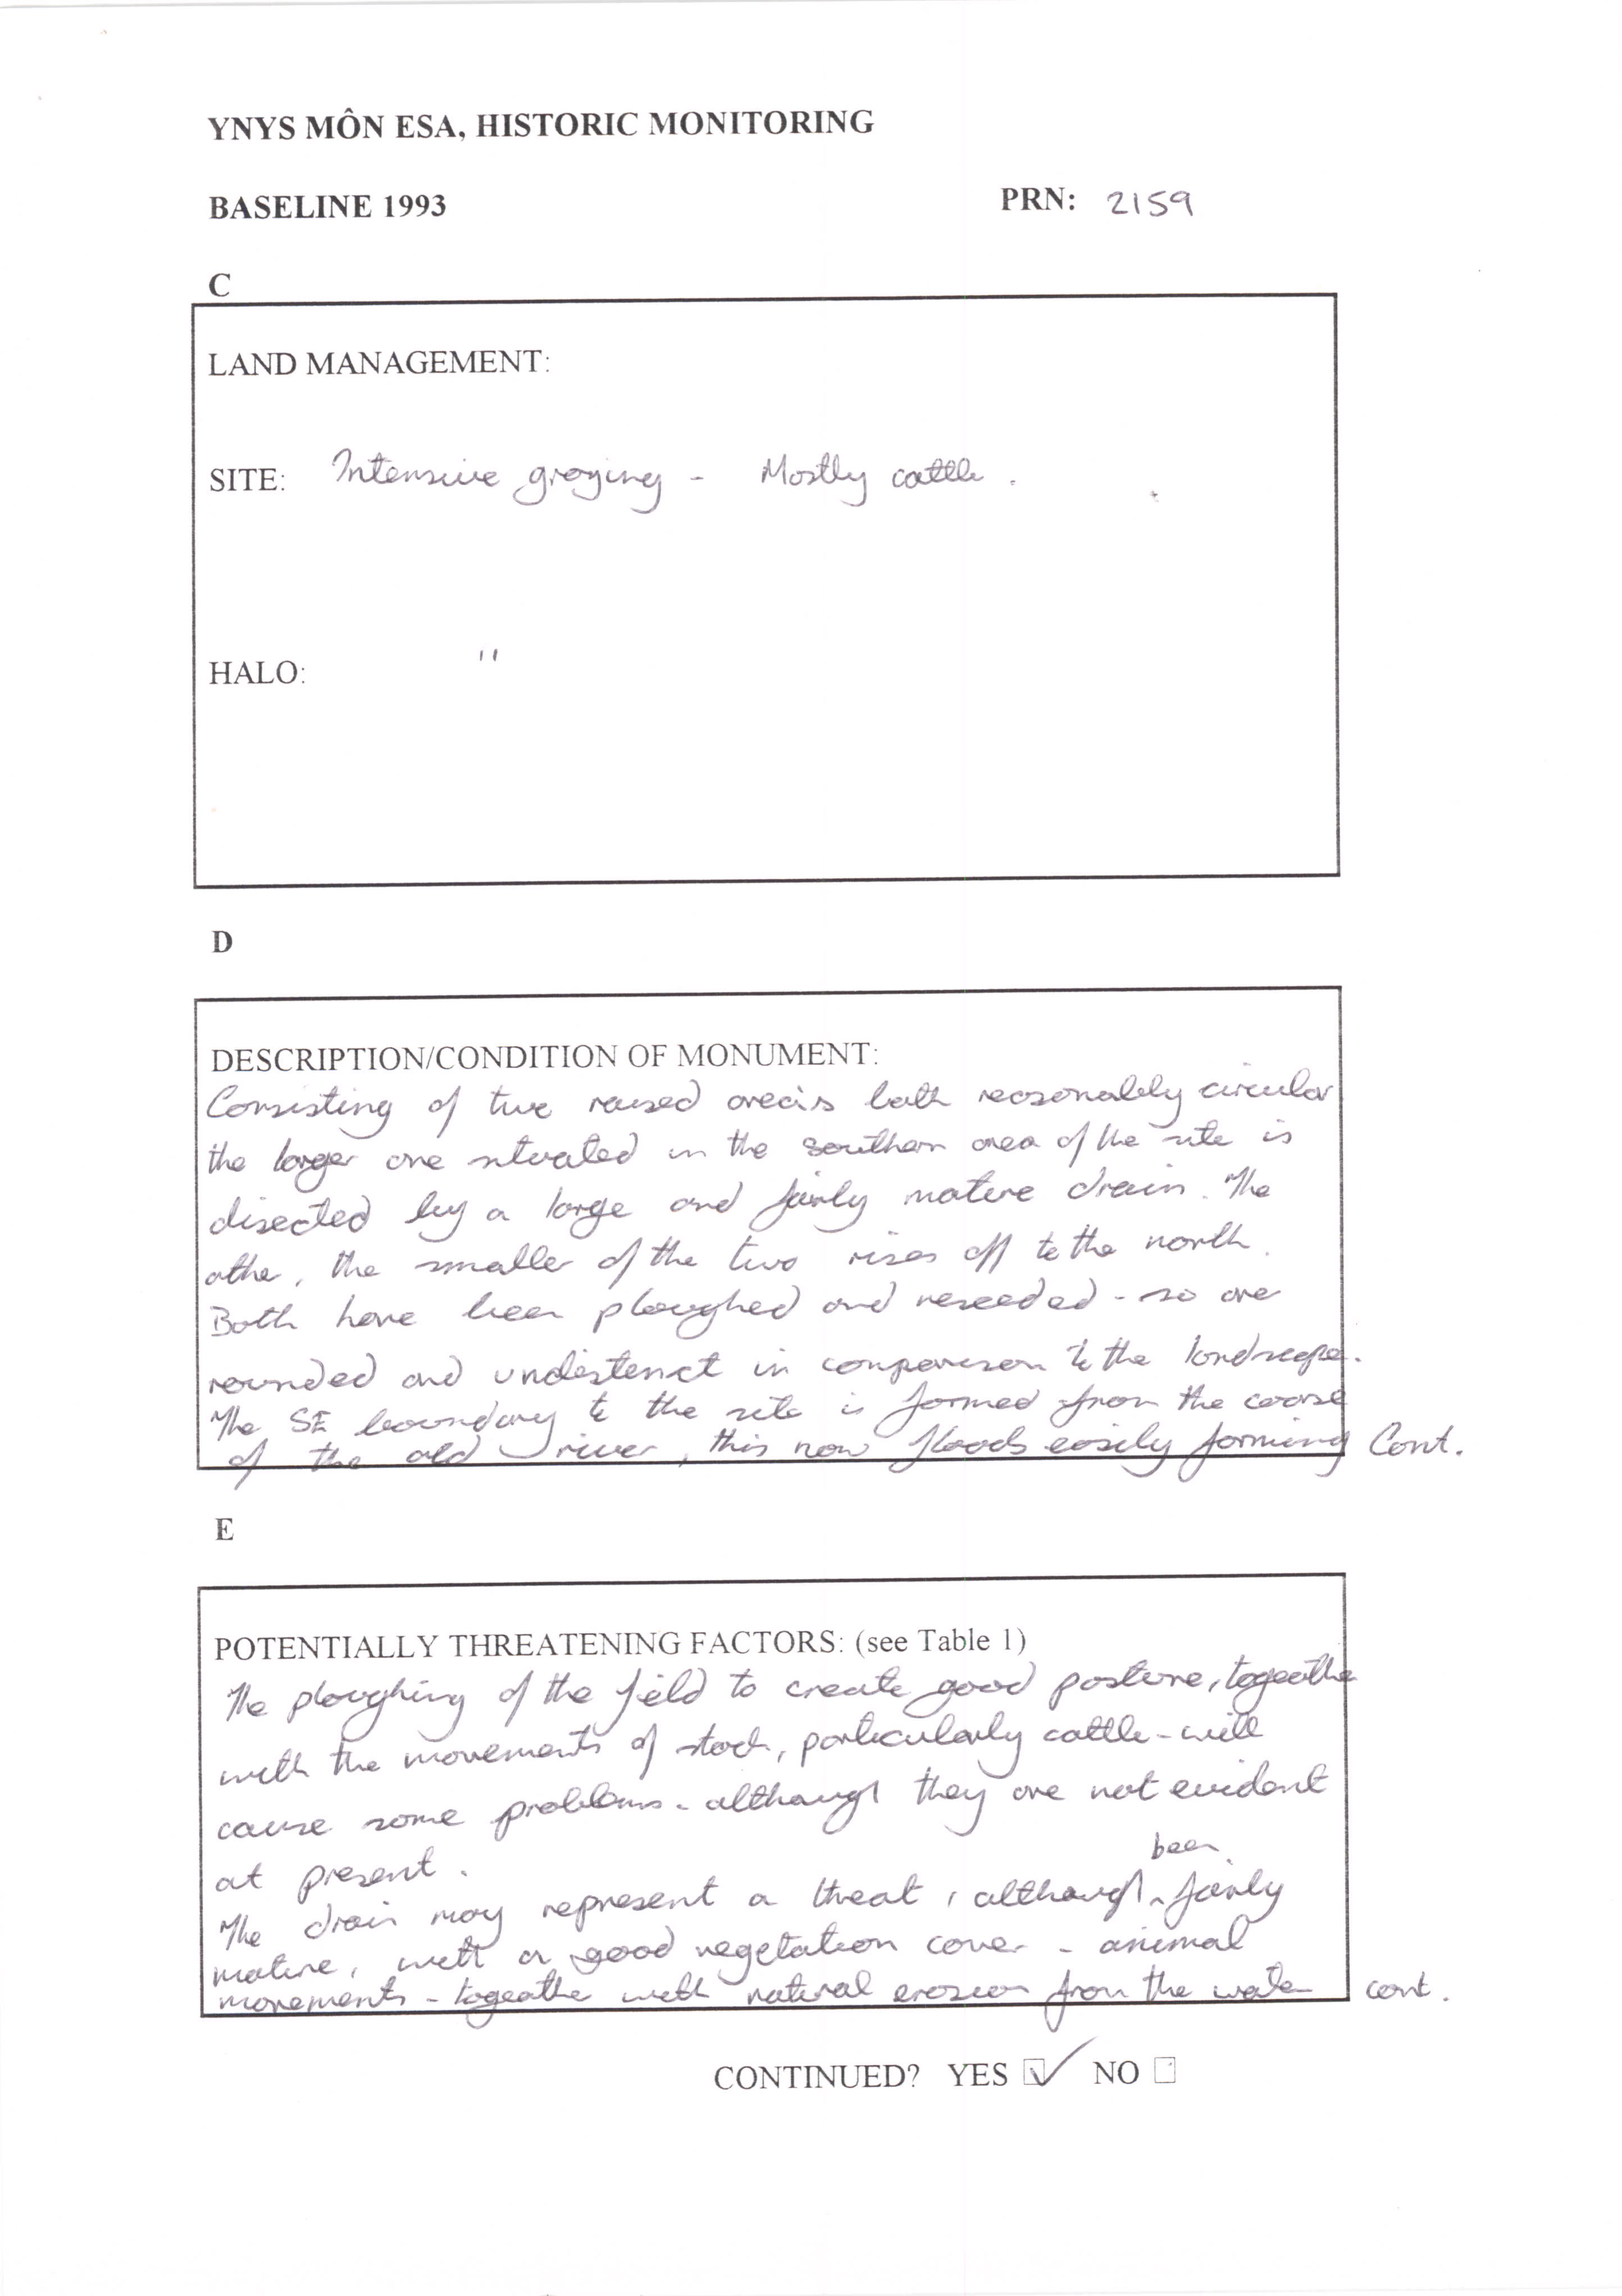 YNYS MÔN ESA, HISTORIC MONITORING
BASELINE 1993 PRN: 2159
C
LAND MANAGEMENT:
SITE: Intensive grazing - Mostly cattle .
HALO: "
D
DESCRIPTION/CONDITION OF MONUMENT:
Consisting of two raised areas both reasonably circular
the larger one situated in the southern area of the site is
disected by a large and fairly mature drain. The
othe, the smaller of the two rises off to the north.
Both have been ploughed and reseeded - so are
rounded and undistinct in comparison to the landscape.
The SE boundary to the site is formed from the coarse
of the old river, this now floods easily forming Cont.
E
POTENTIALLY THREATENING FACTORS: (see Table 1)
The ploughing of the field to create good pasture, togeathe
with the movements of stock, particularly cattle - will
cause some problems - although they are not evident
at present.
been
The drain may represent a threat, although fairly
mature, with a good vegetation cover - animal
movements - togeathe with natural erosion from the water cont.
CONTINUED? YES ✓ NO